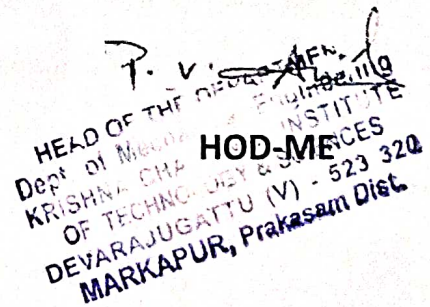 P. V.
HEAD OF THE DEPARTMENT
Dept. of Mechanical Engineering
KRISHNA CHAITANYA INSTITUTE
OF TECHNOLOGY & SCIENCES
HOD-ME
DEVARAJUGATTU (V) - 523 320
MARKAPUR, Prakasam Dist.